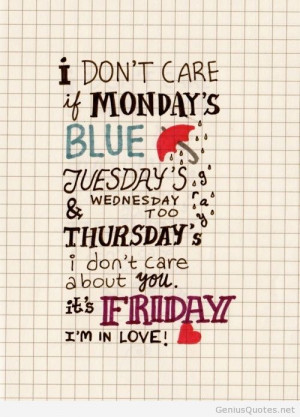 i DON'T CARE
if MONDAY'S
BLUE
TUESDAY'S gray
& WEDNESDAY TOO
THURSDAY'S
i don't care
about you.
it's FRIDAY
I'M IN LOVE!
GeniusQuotes.net